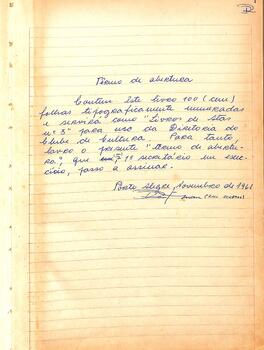 Têrmo de abertura
Contem êste livro 100 (cem)
folhas tipograficamente numeradas
e servirá como "Livro de Atas
nº 3" para uso da Diretoria do
Clube de Cultura. Para tanto
lavro o presente "têrmo de abertu-
ra", que eu, 1º secretário em exer-
cício, passo a assinar.
Porto Alegre, novembro de 1961